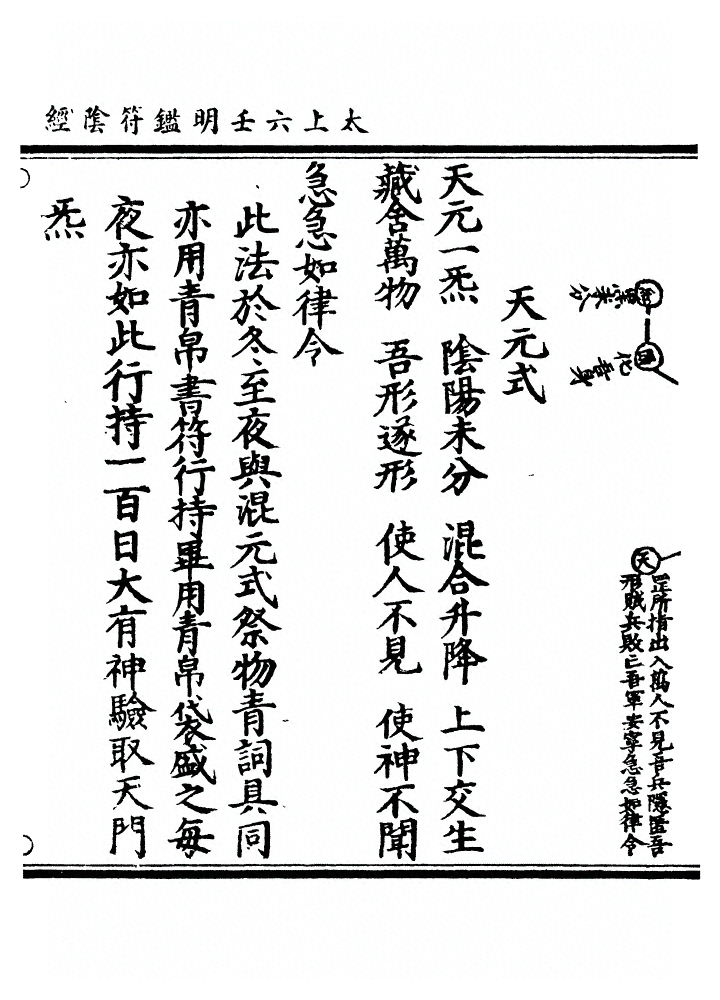 太上六壬明鑑符陰經
未分
代吾身
天
罡所指出入萬人不見吾兵隱匿吾
形賊兵敗亡吾軍安寧急急如律令
天元式
天元一炁 陰陽未分 混合升降 上下交生
藏舍萬物 吾形遂形 使人不見 使神不聞
急急如律令
此法於冬至夜與混元式祭物青詞具同
亦用青帛書符行持畢用青帛袋盛之每
夜亦如此行持一百日大有神驗取天門
炁